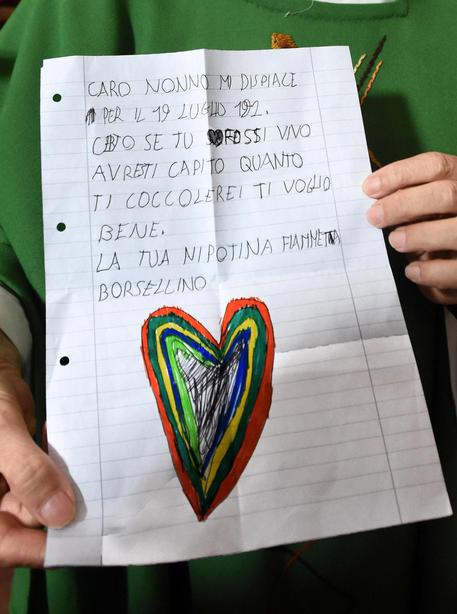 CARO NONNO MI DISPIACE
PER IL 19 LUGLIO 192.
SE TU FOSSI VIVO
AVRETI CAPITO QUANTO
TI COCCOLEREI TI VOGLIO
BENE.
LA TUA NIPOTINA FIAMMETTA
BORSELLINO